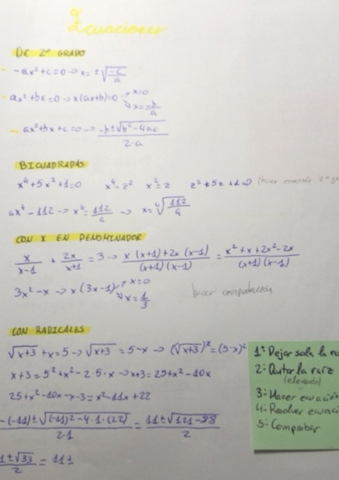 Ecuaciones
DE 2º GRADO
-ax²+c=0 → x=±√(-c/a)
ax²+bx=0 → x(ax+b)=0 → x=0
x=-b/a
ax²+bx+c=0 → -b±√(b²-4ac) / 2·a
BICUADRADAS
x⁴+5x²+1=0 x⁴=z² x²=z z²+5z+1=0
ax⁴-112 → x⁴=112/a → x=⁴√(112/a)
CON X EN DENOMINADOR
x/(x-1) + 2x/(x+1) = 3 → x(x+1)+2x(x-1) / (x+1)(x-1) = x²+x+2x²-2x / (x+1)(x-1)
3x²-x → x(3x-1) x=0
x=1/3
hacer comprobación
CON RADICALES
√(x+3)+x=5 → √(x+3)=5-x → (√(x+3))²=(5-x)²
x+3=5²+x²-2·5·x → x+3=25+x²-10x
25+x²-10x-x-3=x²-11x+22
-(-11)±√((-11)²-4·1·(22)) / 2·1 = 11±√(121-88) / 2
11±√33 / 2 = 11±
1º Dejar sola la
2º Quitar la raíz
(elevando)
3º Hacer ecuación
4º Resolver
5º Comprobar